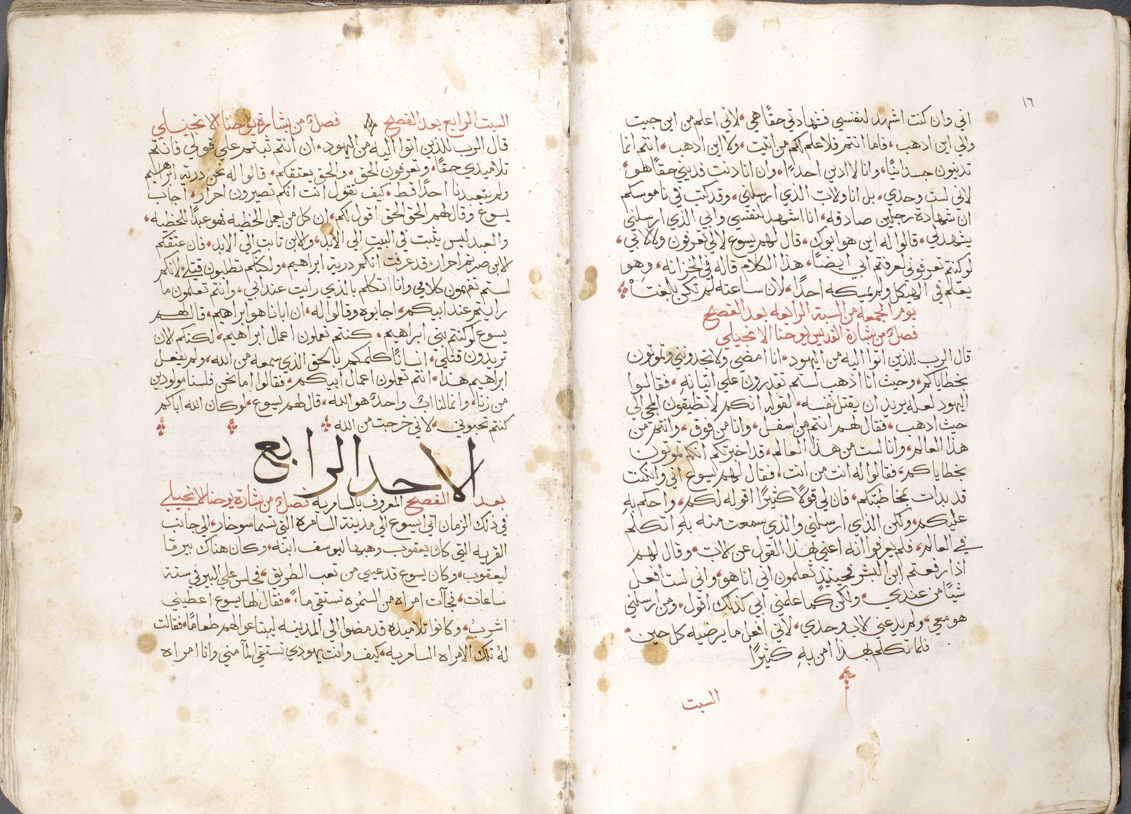 ١٦
اني وان كنت اشهد لنفسي فشهادتي حقًا هي، لاني اعلم من اين جيت
والى اين اذهب، فاما انتم فلا علم لكم من اين اتيت، ولا اين اذهب، انتم انما
تدينون جسدانيًا، وانا لا ادين احدًا، وان انا دنت فديني حقًا هو،
لاني لست وحدي، بل انا والاب الذي ارسلني، وقد كتب في ناموسكم
ان شهادة رجلين صادقه، انا اشهد لنفسي وابي الذي ارسلني
يشهد لي، قالوا له اين هو ابوك، قال لهم يسوع لاني تعرفون ولا لابي،
لو كنتم تعرفوني لعرفتم ابي ايضًا، هذا الكلام قاله في الخزانه، وهو
يعلم في الهيكل ولم يمسكه احدًا، لان ساعته لم تكن بلغت
يوم الجمعه من السبة الرابعه بعد الفصح
فصل من بشارة القديس يوحنا الانجيلي
قال الرب للذين اتوا اليه من اليهود، انا امضي ولا تجدوني وتموتون
بخطاياكم، وحيث انا اذهب لستم تقدرون على اتيانه، فقالوا
اليهود لعله يريد ان يقتل نفسه، لقوله انكم لا تطيقون المجي الى
حيث اذهب، فقال لهم انتم من اسفل، وانا من فوق، وانتم من
هذا العالم، وانا لست من هذا العالم، قد اخبرتكم انكم تموتون
بخطاياكم، فقالوا له انت من انت، فقال لهم يسوع اني وان كنت
قد بدات بمخاطبتكم، فان لي قولًا كثيرًا اقوله لكم، واحكم به
عليكم، ولكن الذي ارسلني والذي سمعت منه به اتكلم
في العالم، فلم يعرفوا انه اعني بهذا القول عن الاب، وقال لهم
اذا رفعتم ابن البشر فحينيذ تعلمون اني انا هو، واني لست افعل
شيًا من عندي، ولكن كما علمني ابي كذلك اقول، ومن ارسلني
هو معي، ولم يدعني لاب وحدي، لاني افعل ما يرضيه كل حين،
فلما تكلم بهذا امن به كثيرًا
السبت
السبت الرابع بعد الفصح فصل من بشارة يوحنا الانجيلي
قال الرب للذين اتوا اليه من اليهود، ان انتم ثبتم على قولي فانتم
تلاميذي حقًا، وتعرفون الحق، والحق يعتقكم، قالوا له نحن ذرية ابرهيم
ولم يتعبدنا احد قط، كيف تقول انت انكم تصيرون احرار، اجاب
يسوع وقال لهم الحق الحق اقول لكم، ان كل من يعمل الخطيه فهو عبدًا للخطيه،
والعبد ليس يثبت في البيت الى الابد، والابن ثابت الى الابد، فان عتقكم
الابن صرتم احرار، قد عرفت انكم درية ابراهيم، ولكنكم تطلبون قتلي، لانكم
لستم تفهمون كلامي وانا اتكلم بالذي رايت عند ابي، وانتم تعلمون ما
رايتم عند ابيكم، اجابوه وقالوا له، ان ابانا هو ابراهيم، قال لهم
يسوع لو كنتم بني ابراهيم، كنتم تعملون اعمال ابراهيم، لكنكم الان
تريدون قتلي، انسانًا كلمكم بالحق الذي سمعه من الله، ولم يفعل
ابراهيم هذا، انتم تعملون اعمال ابيكم، فقالوا اما نحن فلسنا مولودين
من زنا، وانما لنا اب واحد هو الله، قال لهم يسوع، لو كان الله اباكم
كنتم تحبوني، لاني خرجت من الله
الاحد الرابع
بعد الفصح المعروف بالسامريه فصل من بشارة يوحنا الانجيلي
في ذلك الزمان اتى يسوع الى مدينة السامره التي تسما سوخار، الى جانب
القريه التي كان يعقوب وهبها ليوسف ابنه، وكان هناك بيرما
ليعقوب، وكان يسوع قد عيي من تعب الطريق، فجلس على البير في ستة
ساعات، فجات امراه من السمره تستقي ماءً، فقال لها يسوع اعطيني
اشرب، وكانوا تلاميذه قد مضوا الى المدينه ليبتاعوا لهم طعامًا، فقالت
له تلك الامراه السامريه، كيف وانت يهودي تستقي الما مني وانا امراه